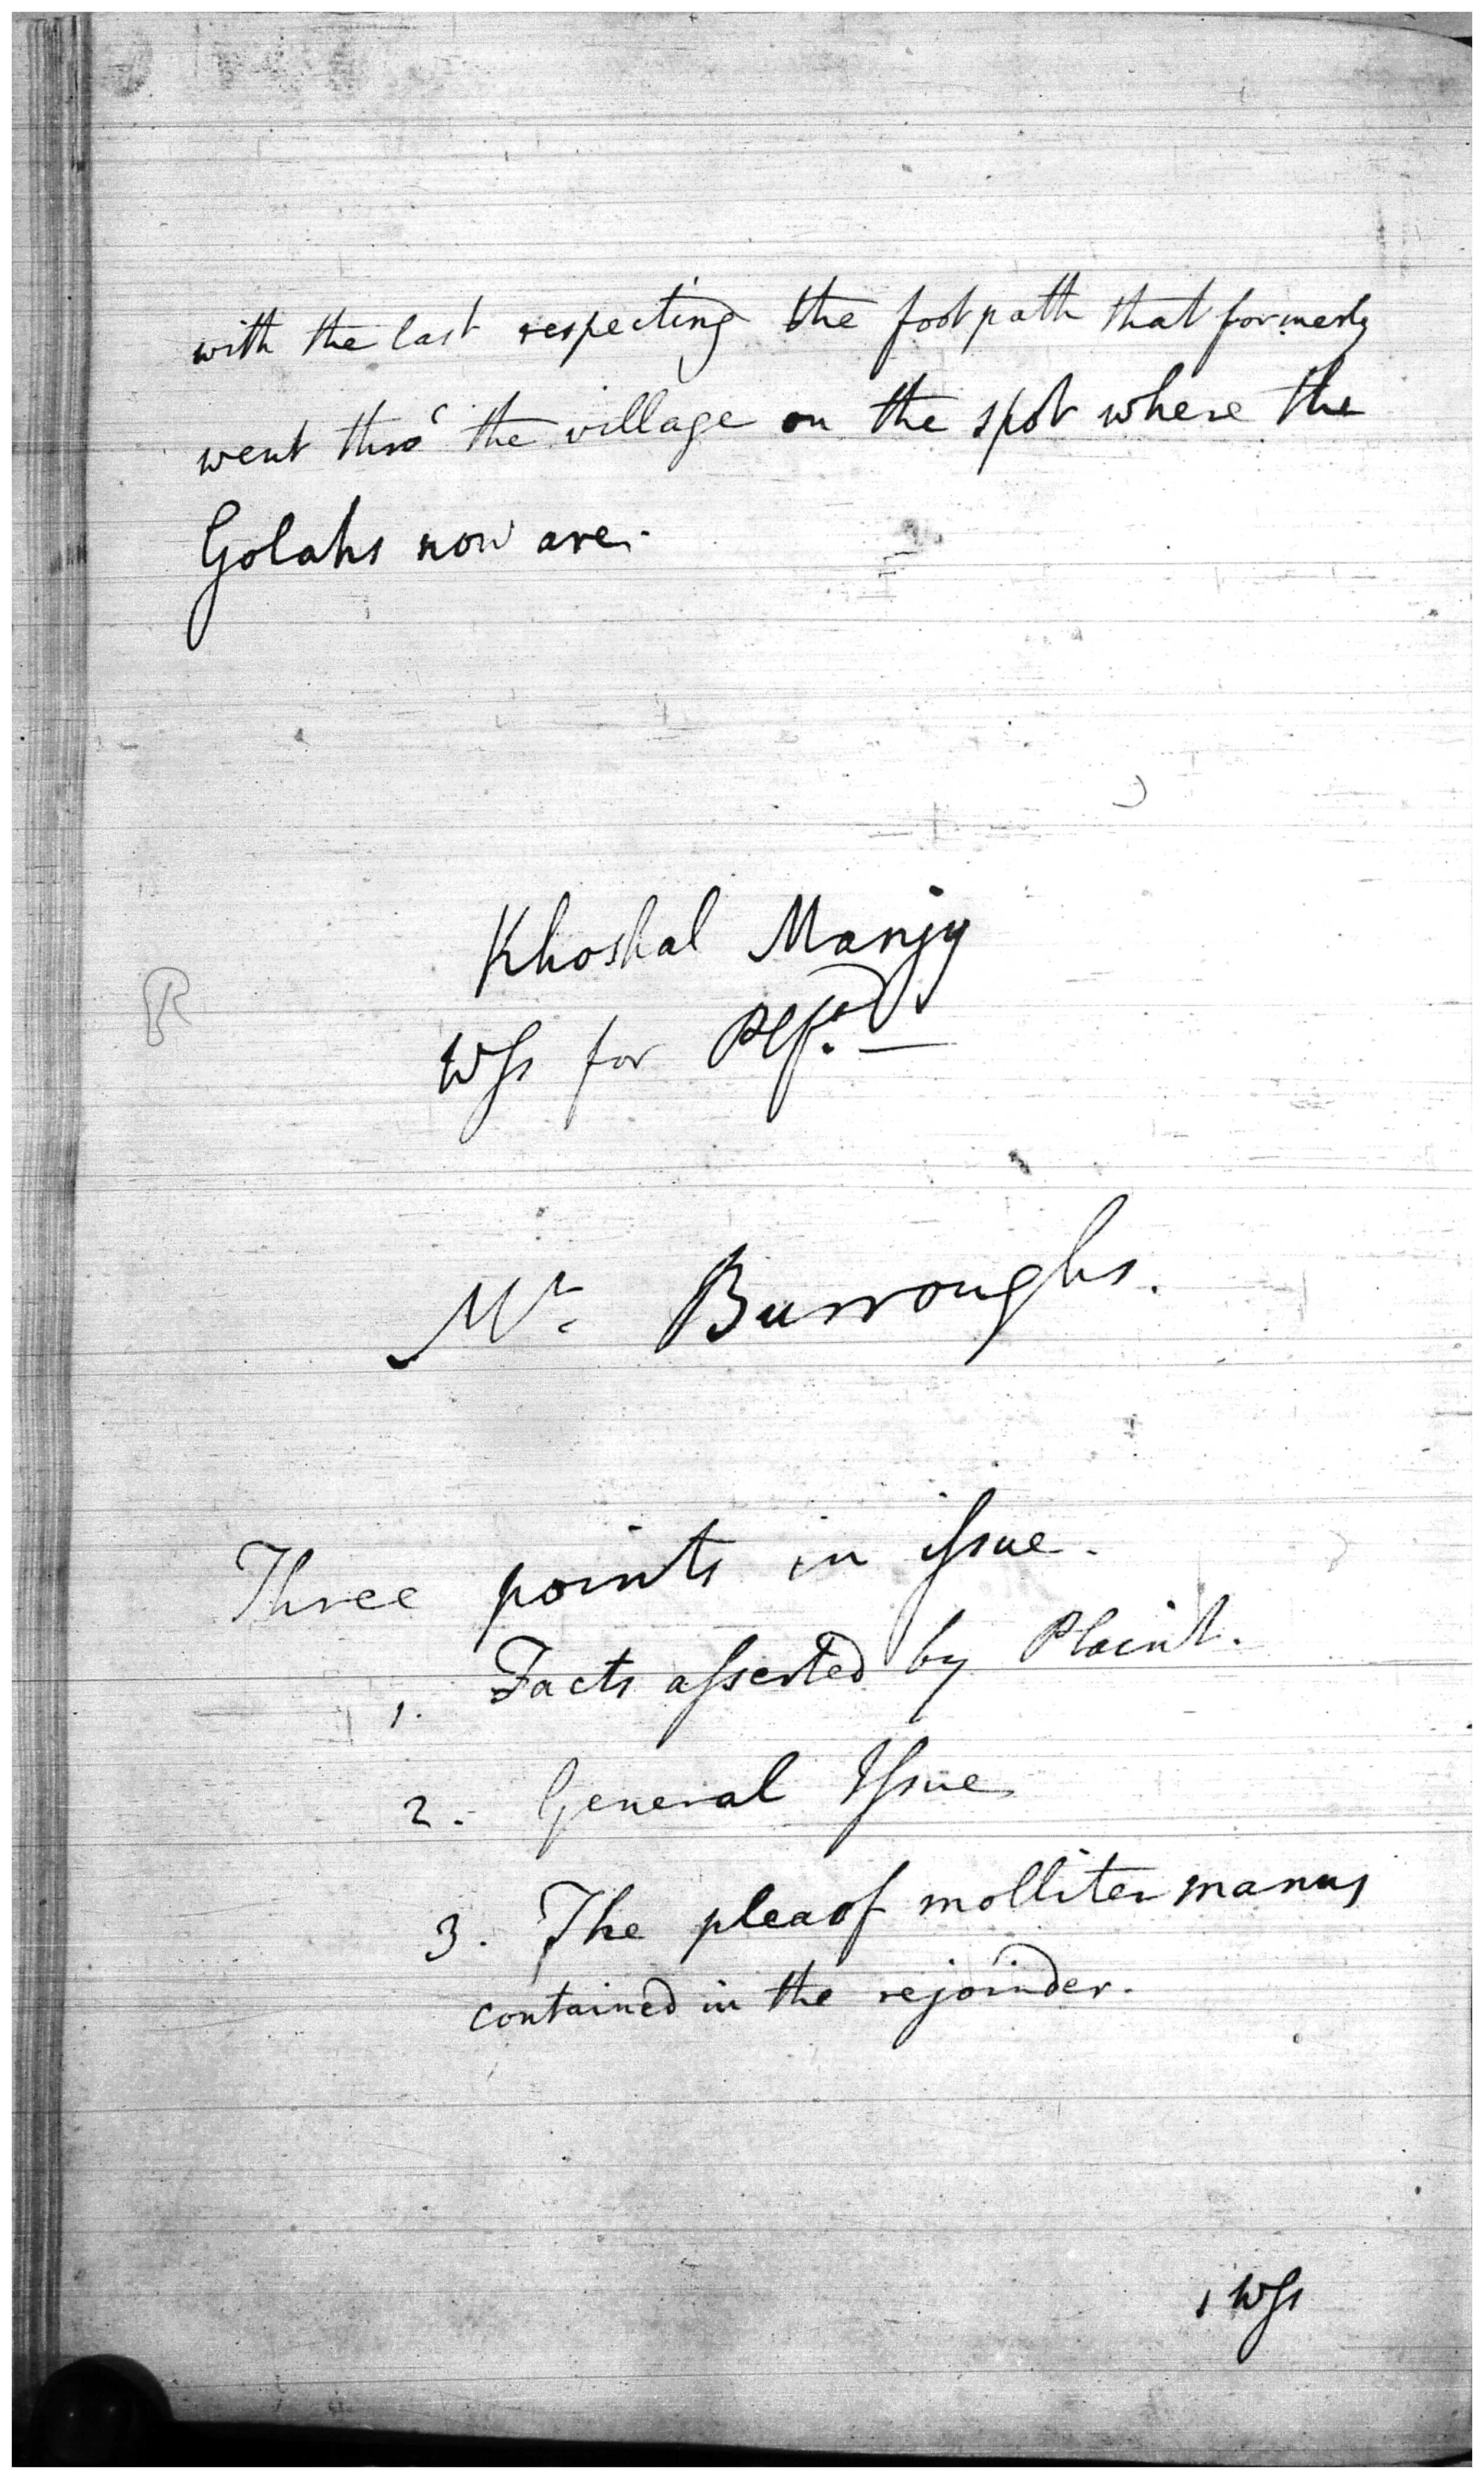 with the last respecting the footpath that formerly
went thro' the village on the spot where the
Golahs now are.
Khoshal Manjy
Wss for Plffd
Mr. Burroughs.
Three points in issue.
1. Facts asserted by Plaint.
2. General Issue
3. The plea of molliter manus
contained in the rejoinder.
1 Wss